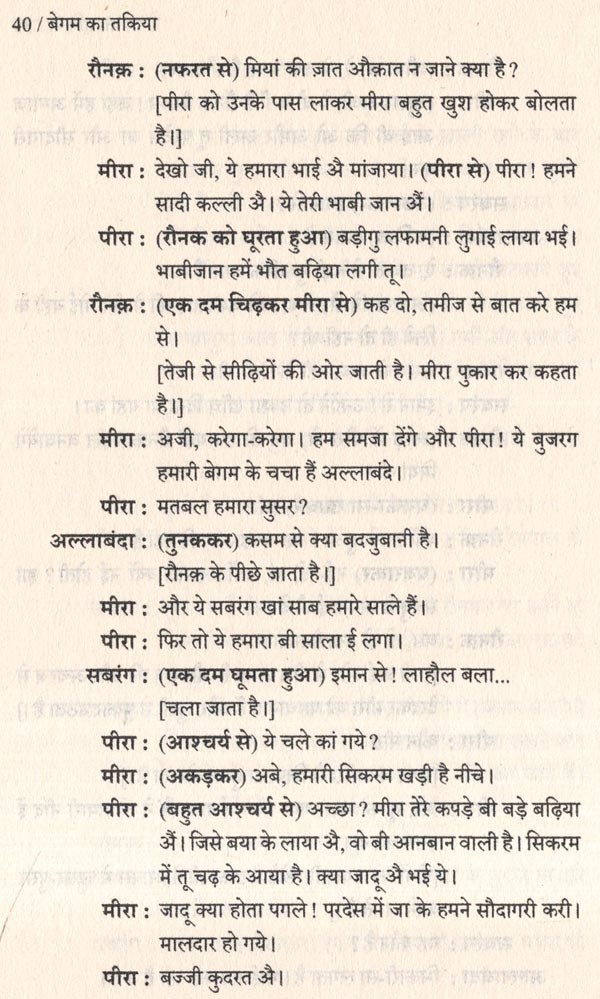 40 / बेगम का तकिया
रौनक़ : (नफरत से) मियां की ज़ात औक़ात न जाने क्या है?
[पीरा को उनके पास लाकर मीरा बहुत खुश होकर बोलता
है।]
मीरा : देखो जी, ये हमारा भाई अै मांजाया। (पीरा से) पीरा! हमने
सादी कल्ली अै। ये तेरी भाबी जान अैं।
पीरा : (रौनक को घूरता हुआ) बड़ीगुलफामनी लुगाई लाया भई।
भाबीजान हमें भौत बढ़िया लगी तू।
रौनक़ : (एक दम चिढ़कर मीरा से) कह दो, तमीज से बात करे हम
से।
[तेजी से सीढ़ियों की ओर जाती है। मीरा पुकार कर कहता
है।]
मीरा : अजी, करेगा-करेगा। हम समजा देंगे और पीरा! ये बुजरग
हमारी बेगम के चचा हैं अल्लाबंदे।
पीरा : मतबल हमारा सुसरा?
अल्लाबंदा : (तुनककर) कसम से क्या बुदजुबानी है।
[रौनक़ के पीछे जाता है।]
मीरा : और ये सबरंग खां साब हमारे साले हैं।
पीरा : फिर तो ये हमारा बी साला ई लगा।
सबरंग : (एक दम घूमता हुआ) इमान से। लाहौल बला...
[चला जाता है।]
पीरा : (आश्चर्य से) ये चले कां गये?
मीरा : (अकड़कर) अबे, हमारी सिकरम खड़ी है नीचे।
पीरा : (बहुत आश्चर्य से) अच्छा? मीरा तेरे कपड़े बी बड़े बढ़िया
अैं। जिसे बया के लाया अै, वो बी आनबान वाली है। सिकरम
में तू चढ़ के आया है। क्या जादू अै भई ये।
मीरा : जादू क्या होता पगले! परदेस में जा के हमने सौदागरी करी।
मालदार हो गये।
पीरा : बज्जी कुदरत अै।